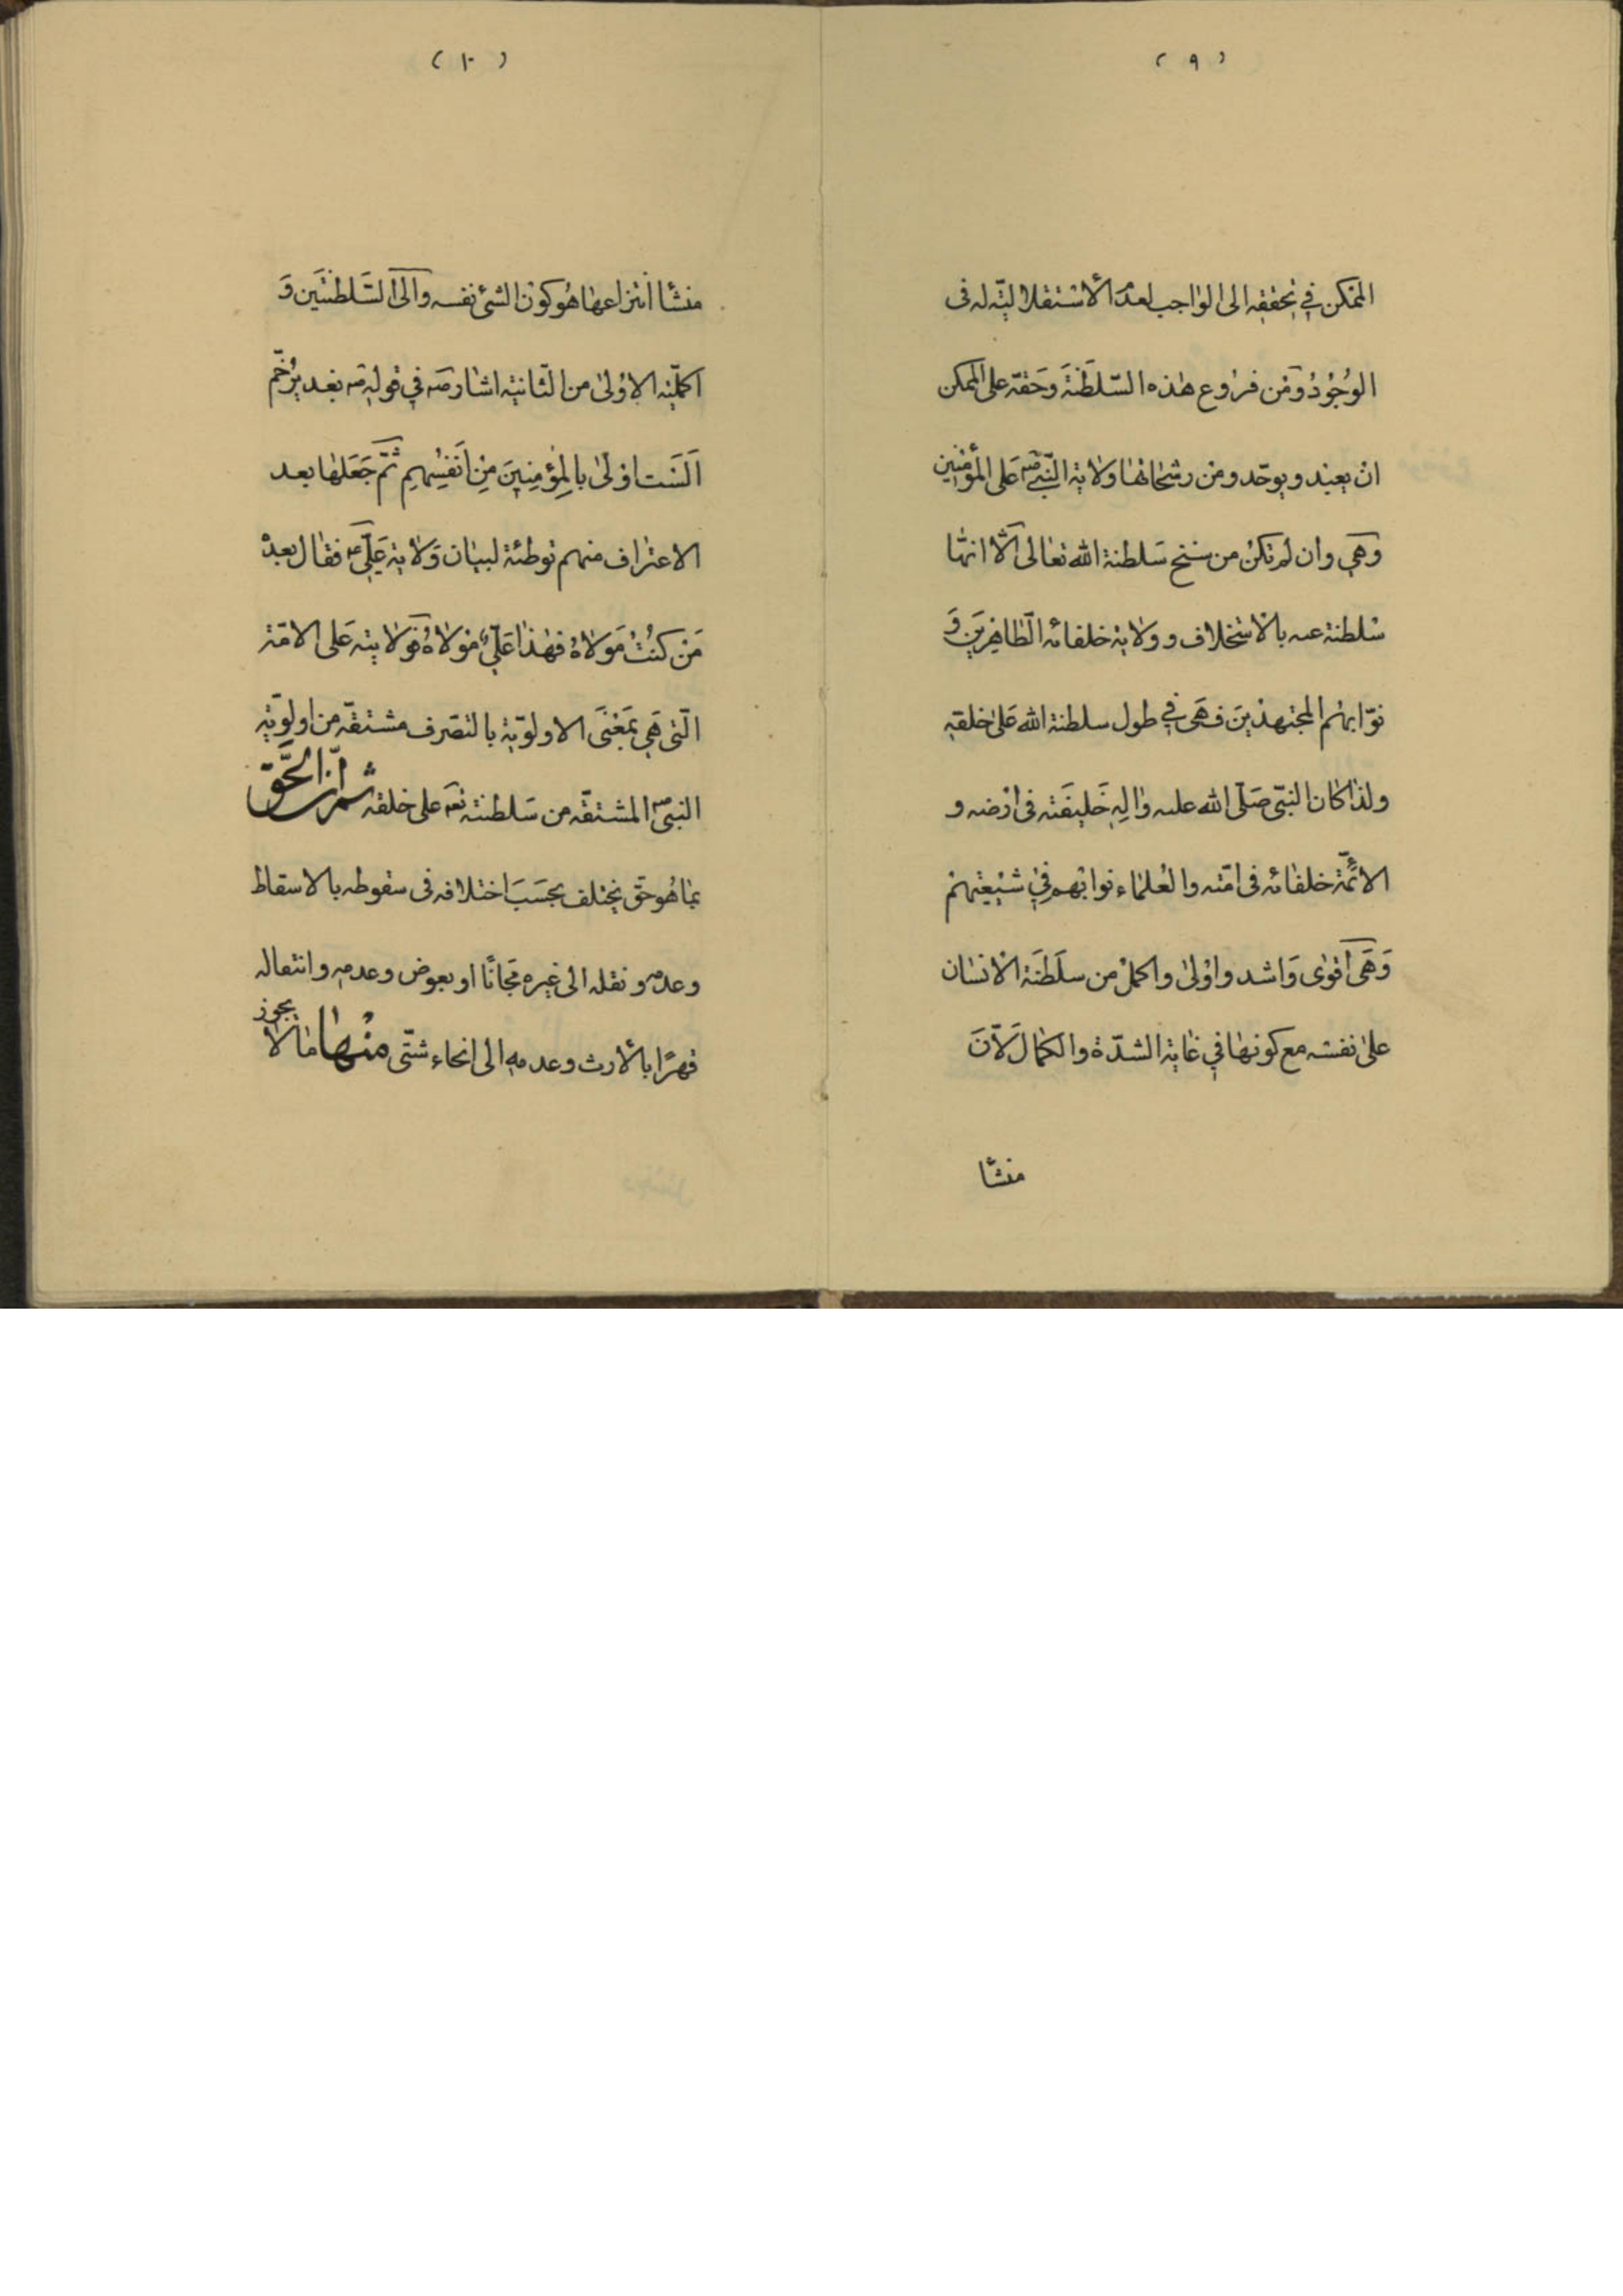 (٩)
الممكن في تحققه الى الواجب لعدم الاستقلاليّه له فى
الوجود ومن فروع هذه السّلطنة وحقه على الممكن
ان يعبد ويوحّد ومن رشحاتها ولاية النّبيّ ص على المؤمنين
وهي وان لم تكن من سنخ سلطنة الله تعالى الّا انّها
سلطنة عنه بالاستخلاف وولاية خلفائه الطّاهرين و
نوّابهم المجتهدين فهى في طول سلطنة الله على خلقه
ولذا كان النبّى صلّى الله عليه واله خليفته فى ارضه و
الائمّة خلفائه فى امّته والعلماء نوابهم في شيعتهم
وهى اقوى واشد واولى واكمل من سلطنة الانسان
على نفسه مع كونها في غاية الشدّة والكمال لانّ
منشأ
(١٠)
منشأ انتزاعها هو كون الشئ نفسه والى السّلطنتين و
اكمليّة الاولى من الثّانية اشار ص في قوله ص بغدير خمّ
الست اولى بالمؤمنين من انفسهم ثمّ جعلها بعد
الاعتراف منهم توطئة لبيان ولاية عليّ ع فقال بعد
من كنت مولاه فهذا عليّ مولاه فولايته على الامّة
الّتى هي بمعنى الاولوّية بالتصّرف مشتقّه من اولوّية
النبىّ ص المشتقّه من سلطنته تعم على خلقه ثم انّ الحقّ
بما هو حق يختلف بحسب اختلافه فى سقوطه بالاسقاط
وعدمه ونقله الى غيره مجانًا او بعوض وعدمه وانتقاله
قهرًا بالارث وعدمه الى انحاء شتّى منها ما لا يجوز